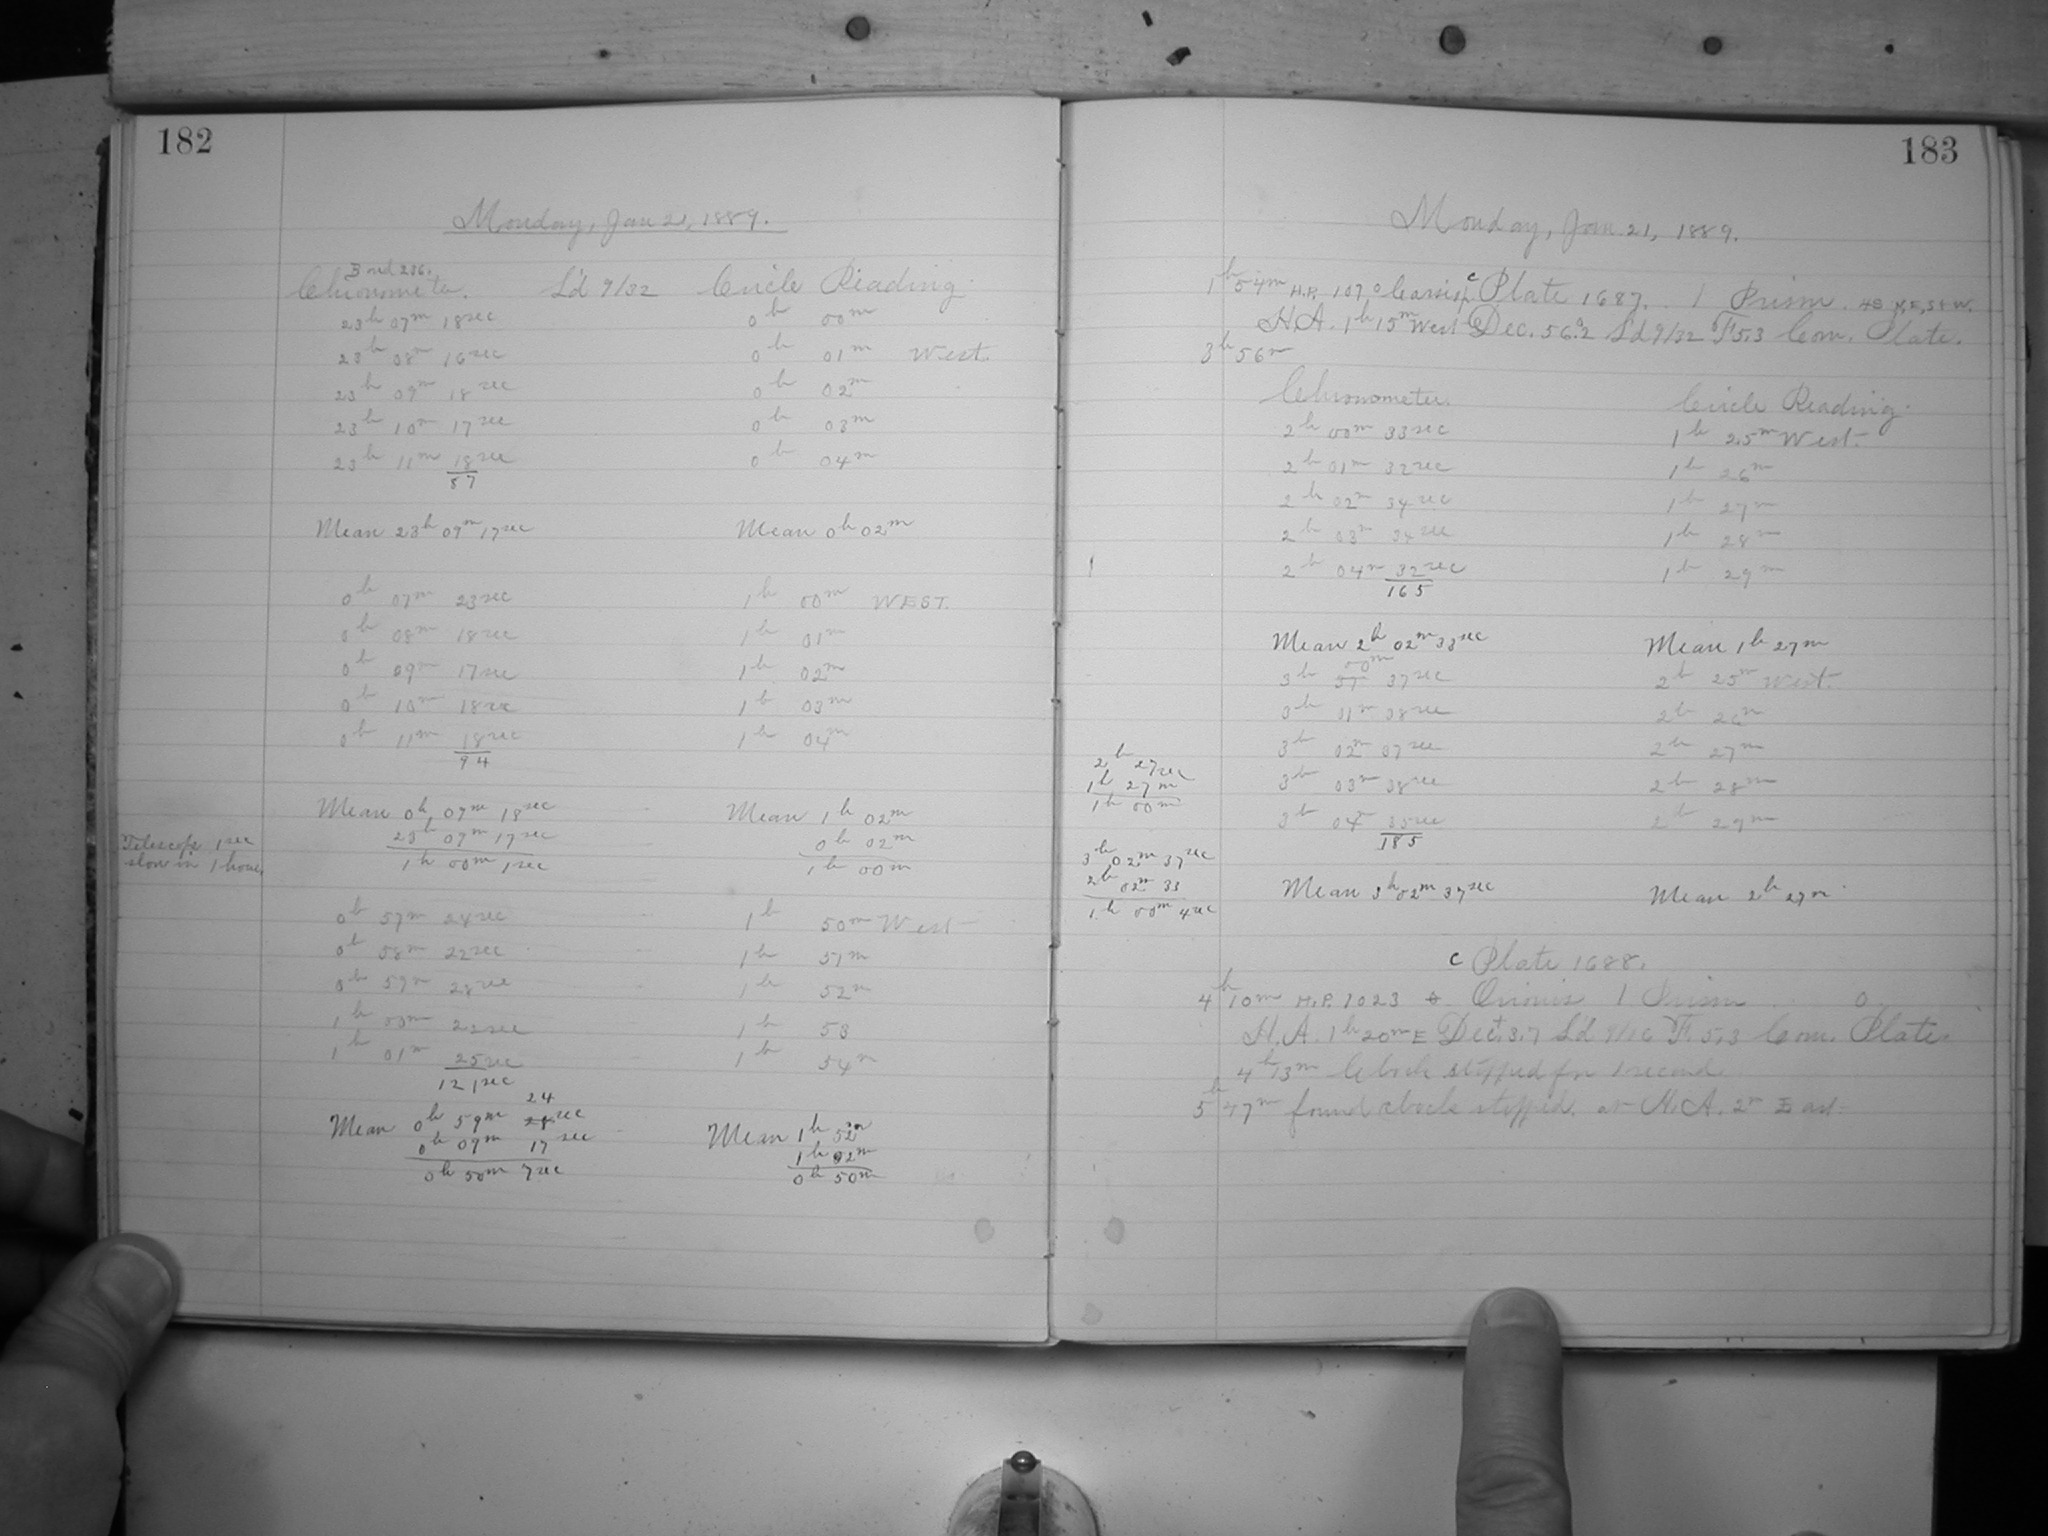 182
Monday, Jan 21, 1889.
Bond 236.
Chronometer. L'd 9/32 Circle Reading.
23h 07m 18sec 0h 00m
23h 08m 16sec 0h 01m West
23h 09m 18sec 0h 02m
23h 10m 17sec 0h 03m
23h 11m 18sec 0h 04m
87
Mean 23h 09m 17sec Mean 0h 02m
0h 07m 23sec 1h 00m WEST.
0h 08m 18sec 1h 01m
0h 09m 17sec 1h 02m
0h 10m 18sec 1h 03m
0h 11m 18sec 1h 04m
94
Mean 0h 07m 18sec Mean 1h 02m
23h 09m 17sec 0h 02m
Telescope 1sec
slow in 1 hour.
1h 00m 1sec 1h 00m
0h 57m 28sec 1h 50m West
0h 58m 22sec 1h 51m
0h 59m 28sec 1h 52m
1h 00m 22sec 1h 53
1h 01m 25sec 1h 54m
121sec
24
Mean 0h 59m 28sec Mean 1h 52m
0h 09m 17sec 1h 02m
0h 50m 7sec 0h 50m
183
Monday, Jan 21, 1889.
1h 54m H.P. 107 Cassiop c Plate 1687. 1 Prism. N, E, S & W.
H.A. 1h 15m West Dec. 56.2 L'd 9/32 F 5.3 Com. Plate.
3h 56m
Chronometer. Circle Reading.
2h 00m 33sec 1h 25m West.
2h 01m 32sec 1h 26m
2h 02m 34sec 1h 27m
2h 03m 34sec 1h 28m
2h 04m 32sec 1h 29m
165
Mean 2h 02m 33sec Mean 1h 27m
00m
3h 59 37sec 2h 25m West.
3h 01m 38sec 2h 26m
3h 02m 37sec 2h 27m
3h 03m 38sec 2h 28m
3h 04m 35sec 2h 29m
185
2h 27sec
1h 27m
1h 00m
3h 02m 37sec
2h 02m 33
1h 00m 4sec
Mean 3h 02m 37sec Mean 2h 27m
c Plate 1688.
4h 10m H.P. 1023 Orionis 1 Prism 0
H.A. 1h 20m E Dec. +3.7 L'd 9/16 F. 5.3 Com. Plate.
4h 13m Clock stopped for 1 second
5h 47m found clock stopped. at H.A. 2m East.